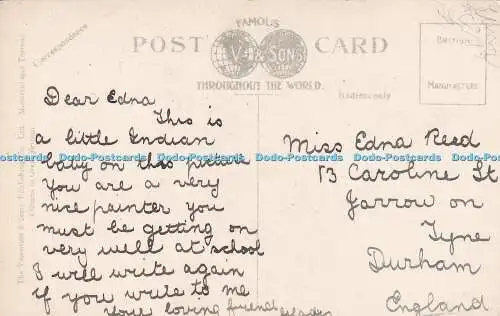 FAMOUS
POST CARD
V & Sons
THROUGHOUT THE WORLD.
Correspondence
BRITISH
MANUFACTURE
Address only
Dear Edna
This is
a little Indian
baby on this picture
You are a very
nice painter you
must be getting on
very well at school
I will write again
if you write to me
your loving friend
Miss Edna Reed
13 Caroline St
Jarrow on
Tyne
Durham
England
Dodo-Postcards Dodo-Postcards Dodo-Postcards Dodo-Postcards Dodo-Postcards Dodo-Postcards